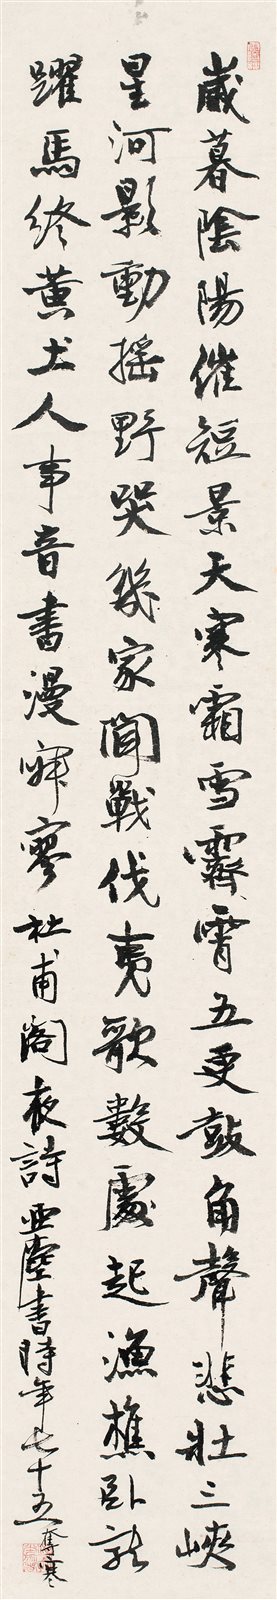 歲暮陰陽催短景天寒霜雪霽霄五更鼓角聲悲壯三峽
星河影動搖野哭幾家聞戰伐夷歌數處起漁樵臥龍
躍馬終黃土人事音書漫寂寥杜甫閣夜詩亞塵書時年七十五奪寒